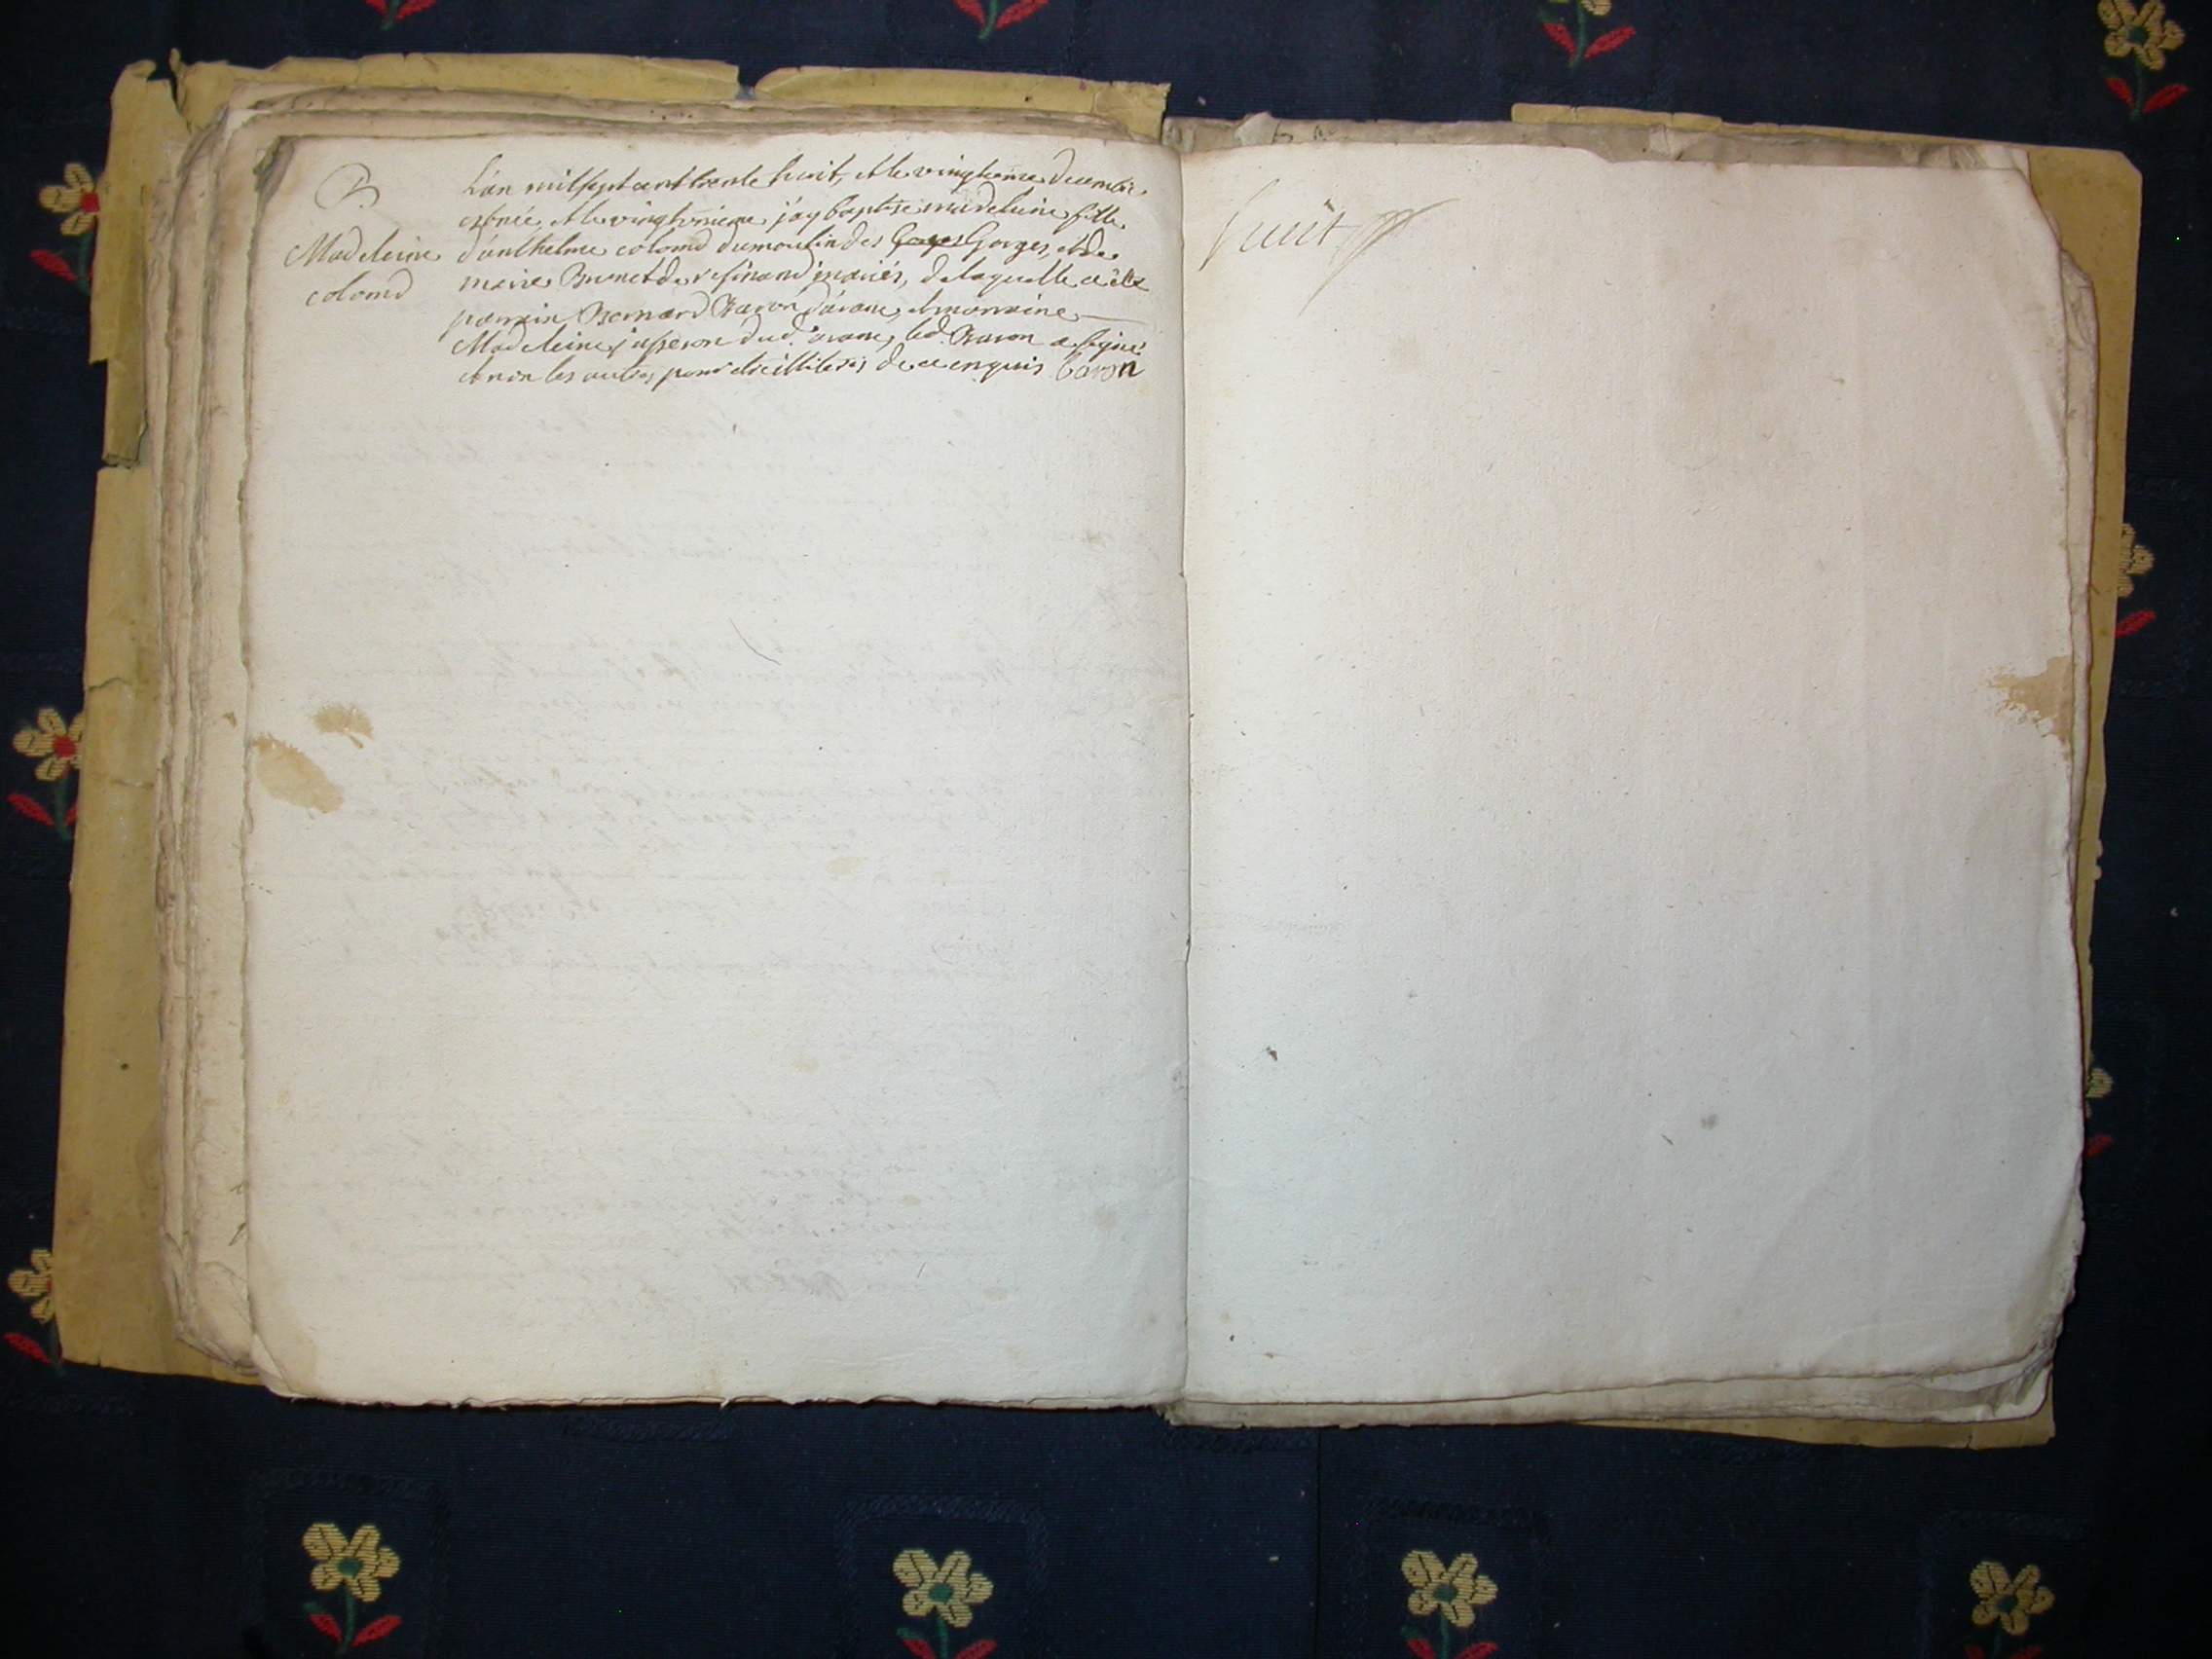 B.
Madeleine
colomd
L'an mil sept cent trente huit, et le vingtieme decembre
est née, et le vingt unieme j'ay baptisé madeleine fille
d'anthelme colomd du moulin des Gorges, et de
marie Brunet de resinand mariés, de laquelle a été
parrain Bernard Baron d'arane, et marraine
Madeleine jusseron dud. arane, led. Baron a signé
et non les autres pour etre illiterés de ce enquis baron
huit